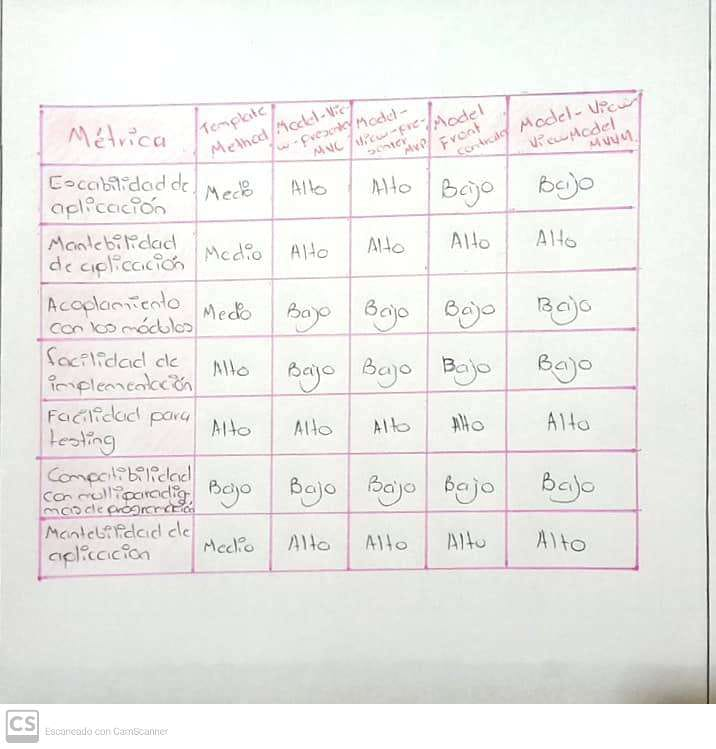 Métrica
Template
Method
Model-Vie-
w-Presenter
MVC
Model-
View-Pre-
senter MVP
Model
Front
Controla
Model-View
ViewModel
MVVM
Escabilidad de
aplicación
Medio Alto Alto Bajo Bajo
Mantebilidad
de aplicación
Medio Alto Alto Alto Alto
Acoplamiento
con los módulos
Medio Bajo Bajo Bajo Bajo
facilidad de
implementación
Alto Bajo Bajo Bajo Bajo
Facilidad para
testing
Alto Alto Alto Alto Alto
Compatibilidad
con multiparadig-
mas de programación
Bajo Bajo Bajo Bajo Bajo
Mantebilidad de
aplicacion
Medio Alto Alto Alto Alto
CS Escaneado con CamScanner